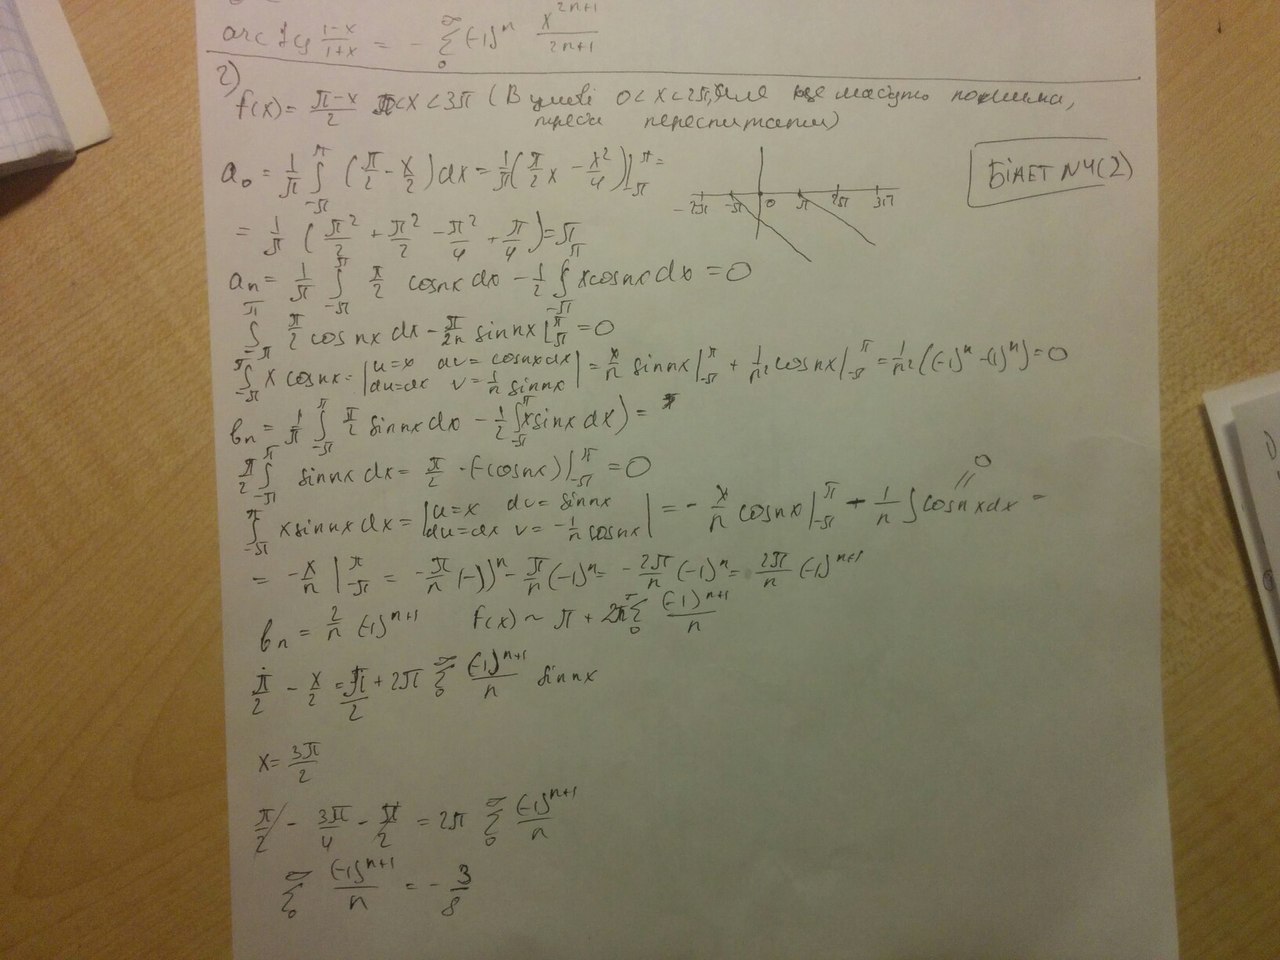 arctg \frac{1-x}{1+x} = - \sum_{0}^{\infty} (-1)^n \frac{x^{2n+1}}{2n+1}
2)
f(x) = \frac{π-x}{2} π<x<3π (В умові 0<x<2π, але це мабуть помилка,
треба переспитати)
БІЛЕТ №4(2)
a_0 = \frac{1}{π} \int_{-π}^{π} (\frac{π}{2} - \frac{x}{2}) dx = \frac{1}{π} (\frac{π}{2} x - \frac{x^2}{4}) |_{-π}^{π} =
-2π -π 0 π 2π 3π
= \frac{1}{π} (\frac{π^2}{2} + \frac{π^2}{2} - \frac{π^2}{4} + \frac{π}{4}) = π
a_n = \frac{1}{π} \int_{-π}^{π} \frac{π}{2} cosnx dx - \frac{1}{2} \int_{-π}^{π} x cosnx dx = 0
\int_{-π}^{π} \frac{π}{2} cos nx dx - \frac{π}{2n} sinnx |_{-π}^{π} = 0
\int_{-π}^{π} x cosnx = | u=x dv= cosnxdx du=dx v= \frac{1}{n} sinnx | = \frac{x}{n} sinnx |_{-π}^{π} + \frac{1}{n^2} cosnx |_{-π}^{π} = \frac{1}{n^2} ((-1)^n - (-1)^n) = 0
b_n = \frac{1}{π} \int_{-π}^{π} \frac{π}{2} sinnx dx - \frac{1}{2} \int_{-π}^{π} x sinx dx) =
\frac{π}{2} \int_{-π}^{π} sinnx dx = \frac{π}{2} · (-cosnx) |_{-π}^{π} = 0
\int_{-π}^{π} x sinnx dx = | u=x dv= sinnx du=dx v= -\frac{1}{n} cosnx | = - \frac{x}{n} cosnx |_{-π}^{π} + \frac{1}{n} \int cosnxdx = 0
= -\frac{x}{n} |_{-π}^{π} = -\frac{π}{n} (-1)^n - \frac{π}{n} (-1)^n = -\frac{2π}{n} (-1)^n = \frac{2π}{n} (-1)^{n+1}
b_n = \frac{2}{n} (-1)^{n+1} f(x) ~ π + 2π \sum_{0}^{∞} \frac{(-1)^{n+1}}{n}
\frac{π}{2} - \frac{x}{2} = \frac{π}{2} + 2π \sum_{0}^{∞} \frac{(-1)^{n+1}}{n} sinnx
x = \frac{3π}{2}
\frac{π}{2} - \frac{3π}{4} - \frac{π}{2} = 2π \sum_{0}^{∞} \frac{(-1)^{n+1}}{n}
\sum_{0}^{∞} \frac{(-1)^{n+1}}{n} = - \frac{3}{8}